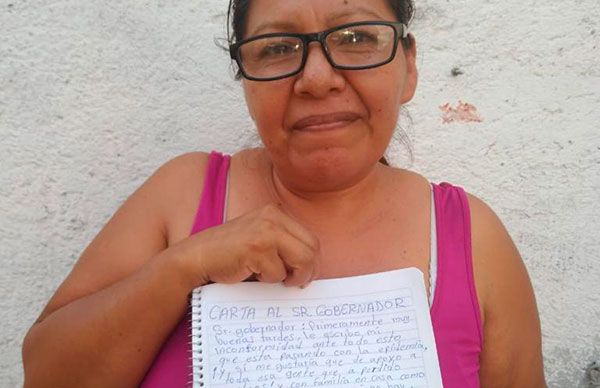 CARTA AL SR. GOBERNADOR
Sr. gobernador: Primeramente muy
buenas tardes, le escribo mi
inconformidad ante todo esto
que esta pasando con la epidemia,
y si me gustaria que de apoyo a
toda esa gente que, a perdido
y con familia en casa como